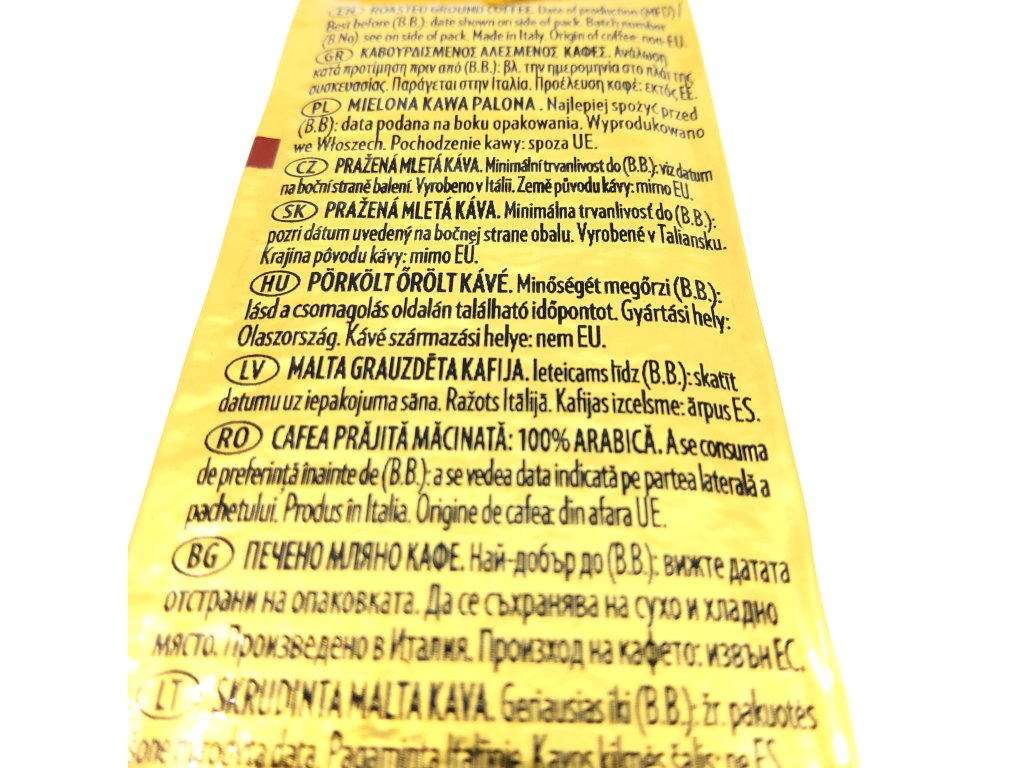 EN ROASTED GROUND COFFEE. Date of production (MFD) /
Best before (B.B.): date shown on side of pack. Batch number
(B.No): see on side of pack. Made in Italy. Origin of coffee: non-EU.
GR ΚΑΒΟΥΡΔΙΣΜΕΝΟΣ ΑΛΕΣΜΕΝΟΣ ΚΑΦΕΣ. Ανάλωση
κατά προτίμηση πριν από (B.B.): βλ. την ημερομηνία στο πλάι της
συσκευασίας. Παράγεται στην Ιταλία. Προέλευση καφέ: εκτός ΕΕ.
PL MIELONA KAWA PALONA . Najlepiej spożyć przed
(B.B): data podana na boku opakowania. Wyprodukowano
we Włoszech. Pochodzenie kawy: spoza UE.
CZ PRAŽENÁ MLETÁ KÁVA. Minimální trvanlivost do (B.B.): viz datum
na boční straně balení. Vyrobeno v Itálii. Země původu kávy: mimo EU.
SK PRAŽENÁ MLETÁ KÁVA. Minimálna trvanlivosť do (B.B.):
pozri dátum uvedený na bočnej strane obalu. Vyrobené v Taliansku.
Krajina pôvodu kávy: mimo EÚ.
HU PÖRKÖLT ŐRÖLT KÁVÉ. Minőségét megőrzi (B.B.):
lásd a csomagolás oldalán található időpontot. Gyártási hely:
Olaszország. Kávé származási helye: nem EU.
LV MALTA GRAUZDĒTA KAFIJA. Ieteicams līdz (B.B.): skatīt
datumu uz iepakojuma sāna. Ražots Itālijā. Kafijas izcelsme: ārpus ES.
RO CAFEA PRĂJITĂ MĂCINATĂ: 100% ARABICĂ. A se consuma
de preferință înainte de (B.B.): a se vedea data indicată pe partea laterală a
pachetului. Produs în Italia. Origine de cafea: din afara UE.
BG ПЕЧЕНО МЛЯНО КАФЕ. Най-добър до (B.B.): вижте датата
отстрани на опаковката. Да се съхранява на сухо и хладно
място. Произведено в Италия. Произход на кафето: извън ЕС.
LT SKRUDINTA MALTA KAVA. Geriausias iki (B.B.): žr. pakuotės
šone nurodytą datą. Pagaminta Italijoje. Kavos kilmės šalis: ne ES.